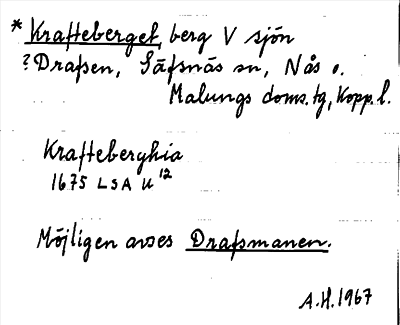 * Krafteberget, berg V sjön
? Drafsen, Säfsnäs sn, Nås o.
Malungs doms.tg, Kopp. l.
Krafteberghia
1675 LSA U 12
Möjligen avses Drafsmanen.
A.H. 1967